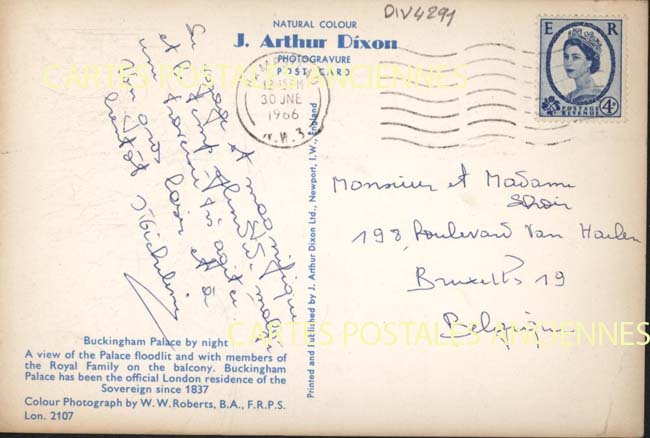 DIV4291
NATURAL COLOUR
J. Arthur Dixon
PHOTOGRAVURE
POST CARD
CARTES POSTALES ANCIENNES
12 45 PM
30 JNE
1966
N.W.3.
E R
4D
POSTAGE
REVENUE
et magnifique
et temps
mais
traversée très agitée
un gros baiser et à
bientôt
Monsieur et Madame
198, Boulevard Van Haelen
Bruxelles 19
Belgique
Printed and Published by J. Arthur Dixon Ltd., Newport, I.W., England
CARTES POSTALES ANCIENNES
Buckingham Palace by night
A view of the Palace floodlit and with members of
the Royal Family on the balcony. Buckingham
Palace has been the official London residence of the
Sovereign since 1837
Colour Photograph by W. W. Roberts, B.A., F.R.P.S.
Lon. 2107